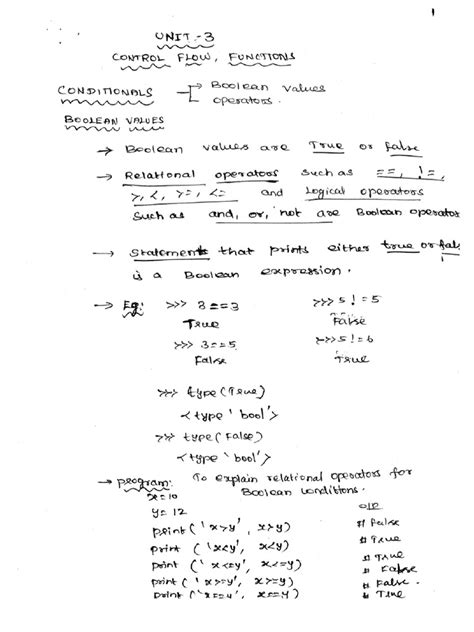 1
UNIT-3
CONTROL FLOW, FUNCTIONS
CONDITIONALS → Boolean values
operators.
BOOLEAN VALUES
→ Boolean values are True or false
→ Relational operators such as ==, !=,
>, <, >=, <= and logical operators
such as and, or, not are Boolean operator
→ Statements that prints either true or fal
is a Boolean expression.
→ Eg: >>> 3==3 >>> 5!=5
True False
>>> 3==5 >>> 5!=6
False True
>>> type(True)
<type 'bool'>
>>> type(False)
<type 'bool'>
→ program: To explain relational operators for
Boolean conditions.
x=10
y=12 o/p
print('x>y', x>y) # False
print('x<y', x<y) # True
print('x<=y', x<=y) # True
print('x>=y', x>=y) # False.
print('x==y', x==y) # True